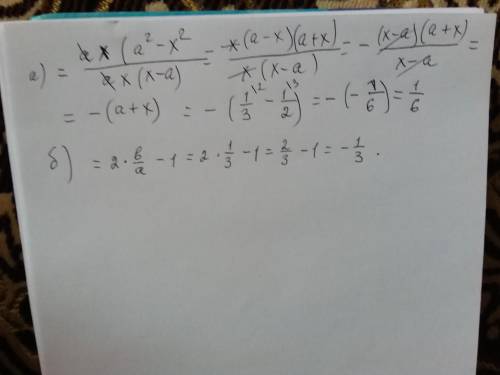 а) = ax(a² - x²/ax(x-a) = x(a-x)(a+x)/x(x-a) = - (x-a)(a+x)/x-a =
= -(a+x) = -(1/3\2 - 1/2\3) = -(-1/6) = 1/6
б) = 2·b/a - 1 = 2·1/3 - 1 = 2/3 - 1 = -1/3.